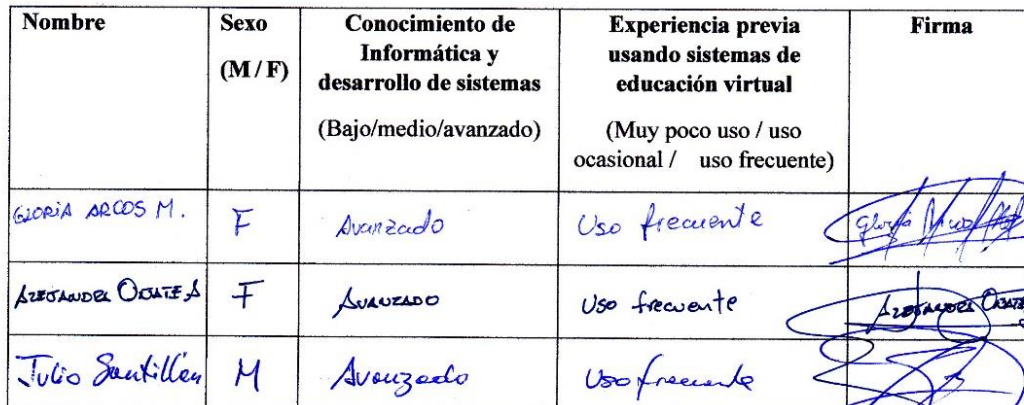 Nombre
Sexo
(M / F)
Conocimiento de
Informática y
desarrollo de sistemas
(Bajo/medio/avanzado)
Experiencia previa
usando sistemas de
educación virtual
(Muy poco uso / uso
ocasional / uso frecuente)
Firma
GLORIA ARCOS M. F Avanzado Uso frecuente Gloria Arcos
ALEJANDRA OÑATE A F AVANZADO Uso frecuente ALEJANDRA OÑATE
Julio Santillán M Avanzado Uso frecuente